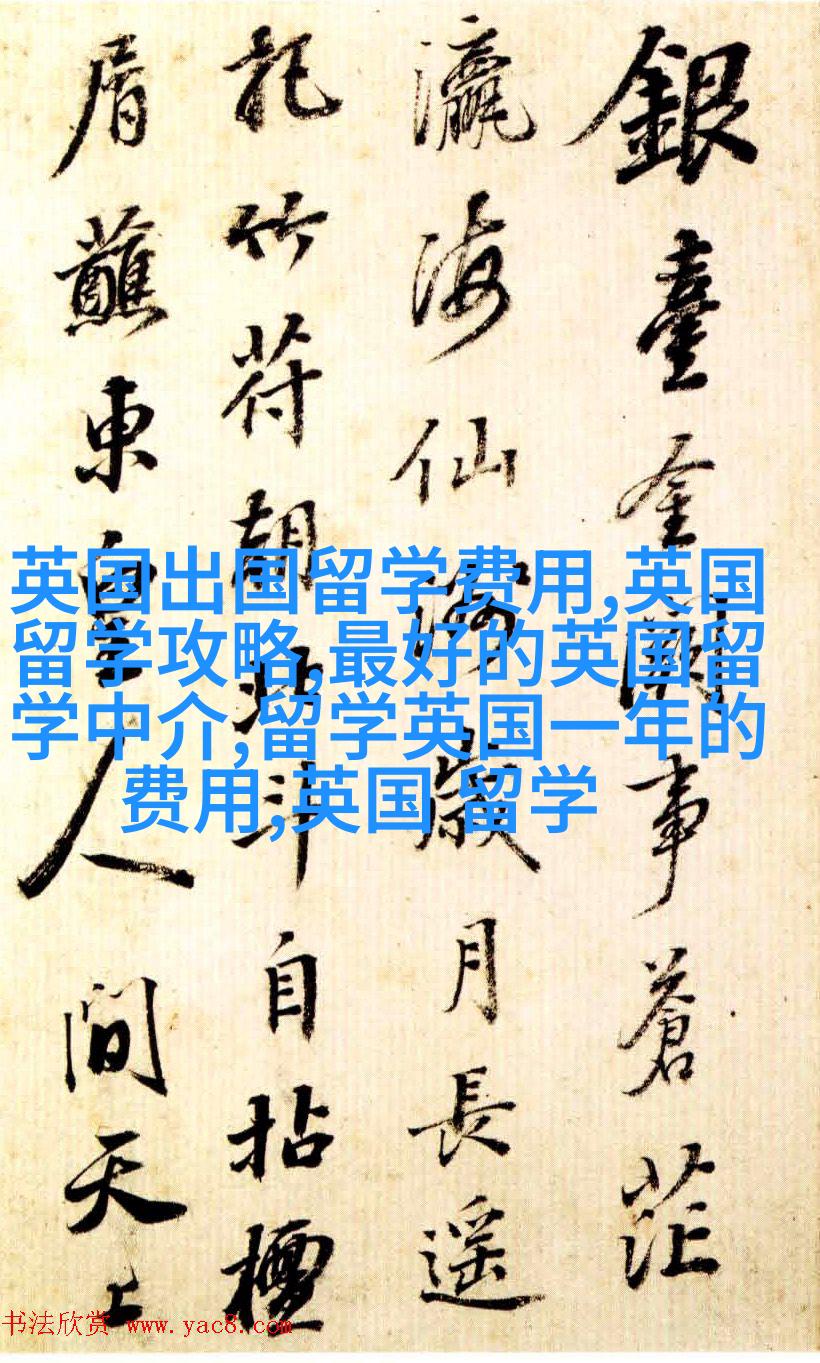 銀臺金闕事蒼茫
瀛海仙歲月長遥
記竹符朝北斗自拈檀
屑蘸東皇人間天上
英国出国留学费用,英国
留学攻略,最好的英国留
学中介,留学英国一年的
费用,英国 留学
书法欣赏 www.yac8.com